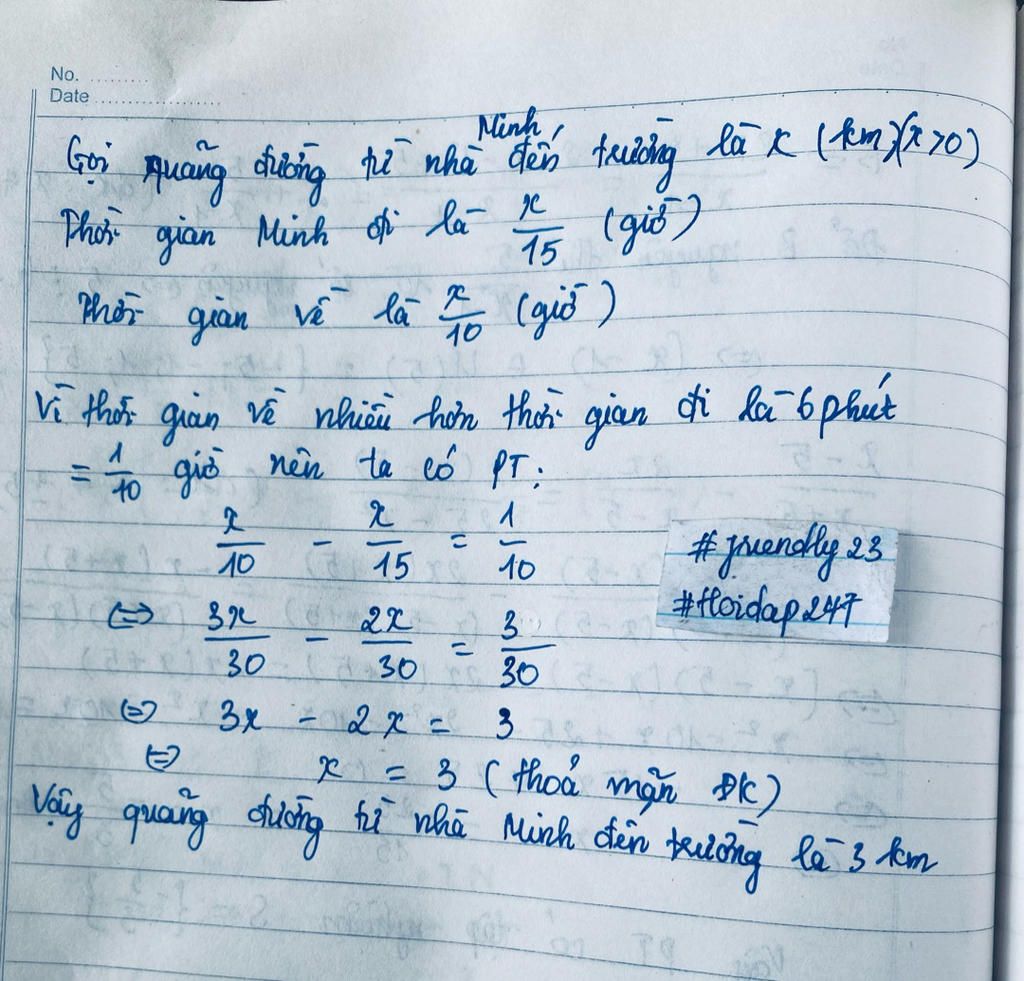 No. ..........
Date ......................
Gọi quãng đường từ nhà Minh đến trường là x (km)(x>0)
Thời gian Minh đi là x/15 (giờ)
Thời gian về là x/10 (giờ)
Vì thời gian về nhiều hơn thời gian đi là 6 phút
= 1/10 giờ nên ta có PT:
x/10 - x/15 = 1/10
⇔ 3x/30 - 2x/30 = 3/30
#friendly23
#Hoidap247
⇔ 3x - 2x = 3
⇔ x = 3 (thoả mãn ĐK)
Vậy quãng đường từ nhà Minh đến trường là 3 km